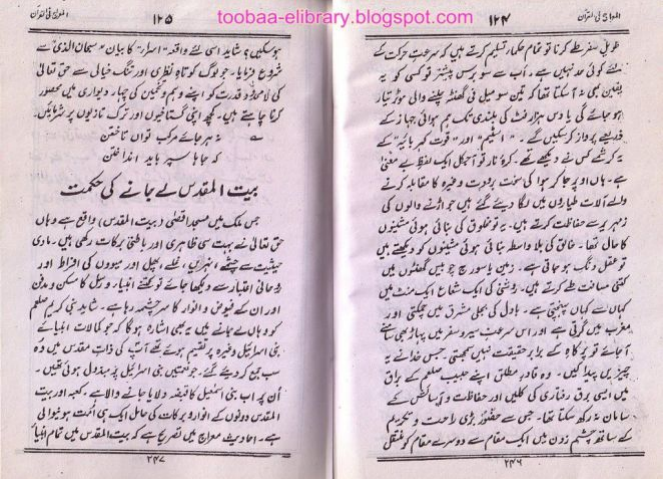 toobaa-elibrary.blogspot.com
المعراج فی القرآن
۱۲۴
طویل سفر طے کرنا تو تمام حکماء تسلیم کرتے ہیں کہ سرعتِ حرکت کے
لئے کوئی حد نہیں ہے۔ اب سے سو برس پیشتر تو کسی کو یہ
یقین بھی نہ آ سکتا تھا کہ تین سو میل فی گھنٹہ چلنے والی موٹر تیار
ہو جائے گی یا دس ہزار فٹ کی بلندی تک ہم ہوائی جہاز کے
ذریعے پرواز کر سکیں گے۔ "اسٹیم" اور "قوتِ کہربائیہ" کے
یہ کرشمے کس نے دیکھے تھے۔ کرۂ نار تو آجکل ایک لفظ بے معنیٰ
ہے۔ ہاں اوپر جا کر ہوا کی سخت برودت وغیرہ کا مقابلہ کرنے
والے آلات طیاروں میں لگا دیئے گئے ہیں جو اڑنے والوں کی
زمہریر سے حفاظت کرتے ہیں۔ یہ تو مخلوق کی بنائی ہوئی مشینوں
کا حال تھا۔ خالق کی بلا واسطہ بنائی ہوئی مشینوں کو دیکھتے ہیں
تو عقل دنگ ہو جاتی ہے۔ زمین یا سورج چوبیس گھنٹوں میں
کتنی مسافت طے کرتے ہیں۔ روشنی کی ایک شعاع ایک منٹ میں
کہاں سے کہاں پہنچتی ہے۔ بادل کی بجلی مشرق میں چمکتی اور
مغرب میں گرتی ہے اور اس سرعتِ سیر و سفر میں پہاڑ بھی سامنے
آ جائے تو پرِ کاہ کے برابر حقیقت نہیں سمجھتی۔ جس خدا نے یہ
چیزیں پیدا کیں۔ وہ قادرِ مطلق اپنے حبیب صلعم کے براق
میں ایسی برق رفتاری کی کلیں اور حفاظت و آسائش کے
سامان نہ رکھ سکتا تھا۔ جس سے حضورؐ بڑی راحت و تکریم
کے ساتھ چشمِ زدن میں ایک مقام سے دوسرے مقام کو منتقل
۲۴۶
المعراج فی القرآن
۱۲۵
ہو سکیں؟ شاید اسی لئے واقعہ "اسراء" کا بیان "سبحان الذی" سے
شروع فرمایا۔ جو لوگ کوتاہ نظری اور تنگ خیالی سے حق تعالیٰ
کی لامحدود قدرت کو اپنے وہم و تخمین کی چہار دیواری میں محصور
کرنا چاہتے ہیں۔ کچھ اپنی گستاخیوں اور ترک تازیوں پر شرمائیں۔
نہ ہر جائے مرکب تواں تاختن
کہ جاہا سپر باید انداختن
بیت المقدس لے جانے کی حکمت
جس ملک میں مسجد اقصیٰ (بیت المقدس) واقع ہے وہاں
حق تعالیٰ نے بہت سی ظاہری اور باطنی برکات رکھی ہیں۔ مادی
حیثیت سے چشمے، نہریں، غلے، پھل اور میووں کی افراط اور
روحانی اعتبار سے دیکھا جائے تو کتنے انبیاء و رسل کا مسکن و مدفن
اور ان کے فیوض و انوار کا سرچشمہ رہا ہے۔ شاید نبی کریم صلعم
کو وہاں لے جانے میں یہ بھی اشارہ ہوگا کہ جو کمالات انبیائے
بنی اسرائیل وغیرہ پر تقسیم ہوئے تھے آپؐ کی ذاتِ مقدس میں وہ
سب جمع کر دیئے گئے۔ جو نعمتیں بنی اسرائیل پر مبذول ہوئی تھیں۔
اُن پر اب بنی اسمٰعیل کا قبضہ دلایا جانے والا ہے۔ کعبہ اور بیت
المقدس دونوں کے انوار و برکات کی حامل ایک ہی اُمت ہونیوالی
ہے۔ احادیث معراج میں تصریح ہے کہ بیت المقدس میں تمام انبیاءؑ
۲۴۷